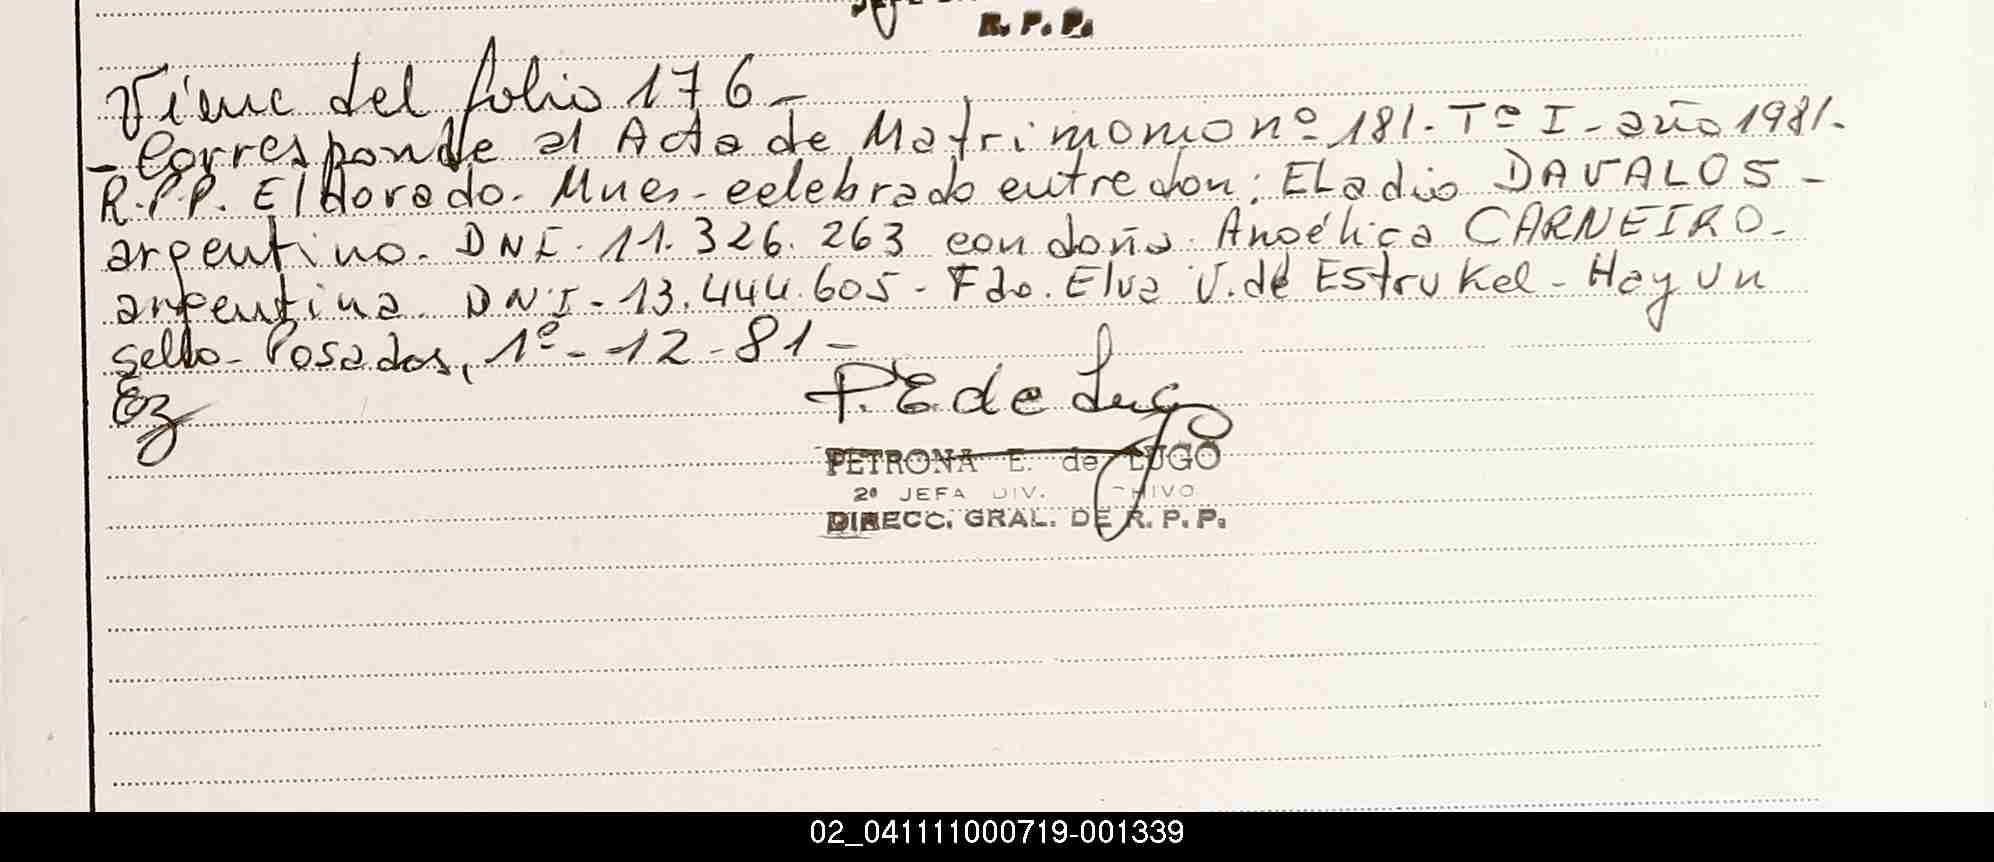 R. P. P.
Viene del folio 176-
- Corresponde al Acta de Matrimonio nº 181. Tº I - año 1981.
R.P.P. Eldorado. Mnes - celebrado entre don: Eladio DAVALOS -
argentino. DNI. 11.326.263 con doña. Angélica CARNEIRO.
argentina. DNI - 13.444.605 - Fdo. Elva V. de Estrukel - Hay un
sello - Posadas, 1º - 12 - 81 -
Ez
P. E. de Lugo
PETRONA E. de LUGO
2º JEFA DIV.
DIRECC. GRAL. DE R. P. P.
02_041111000719-001339